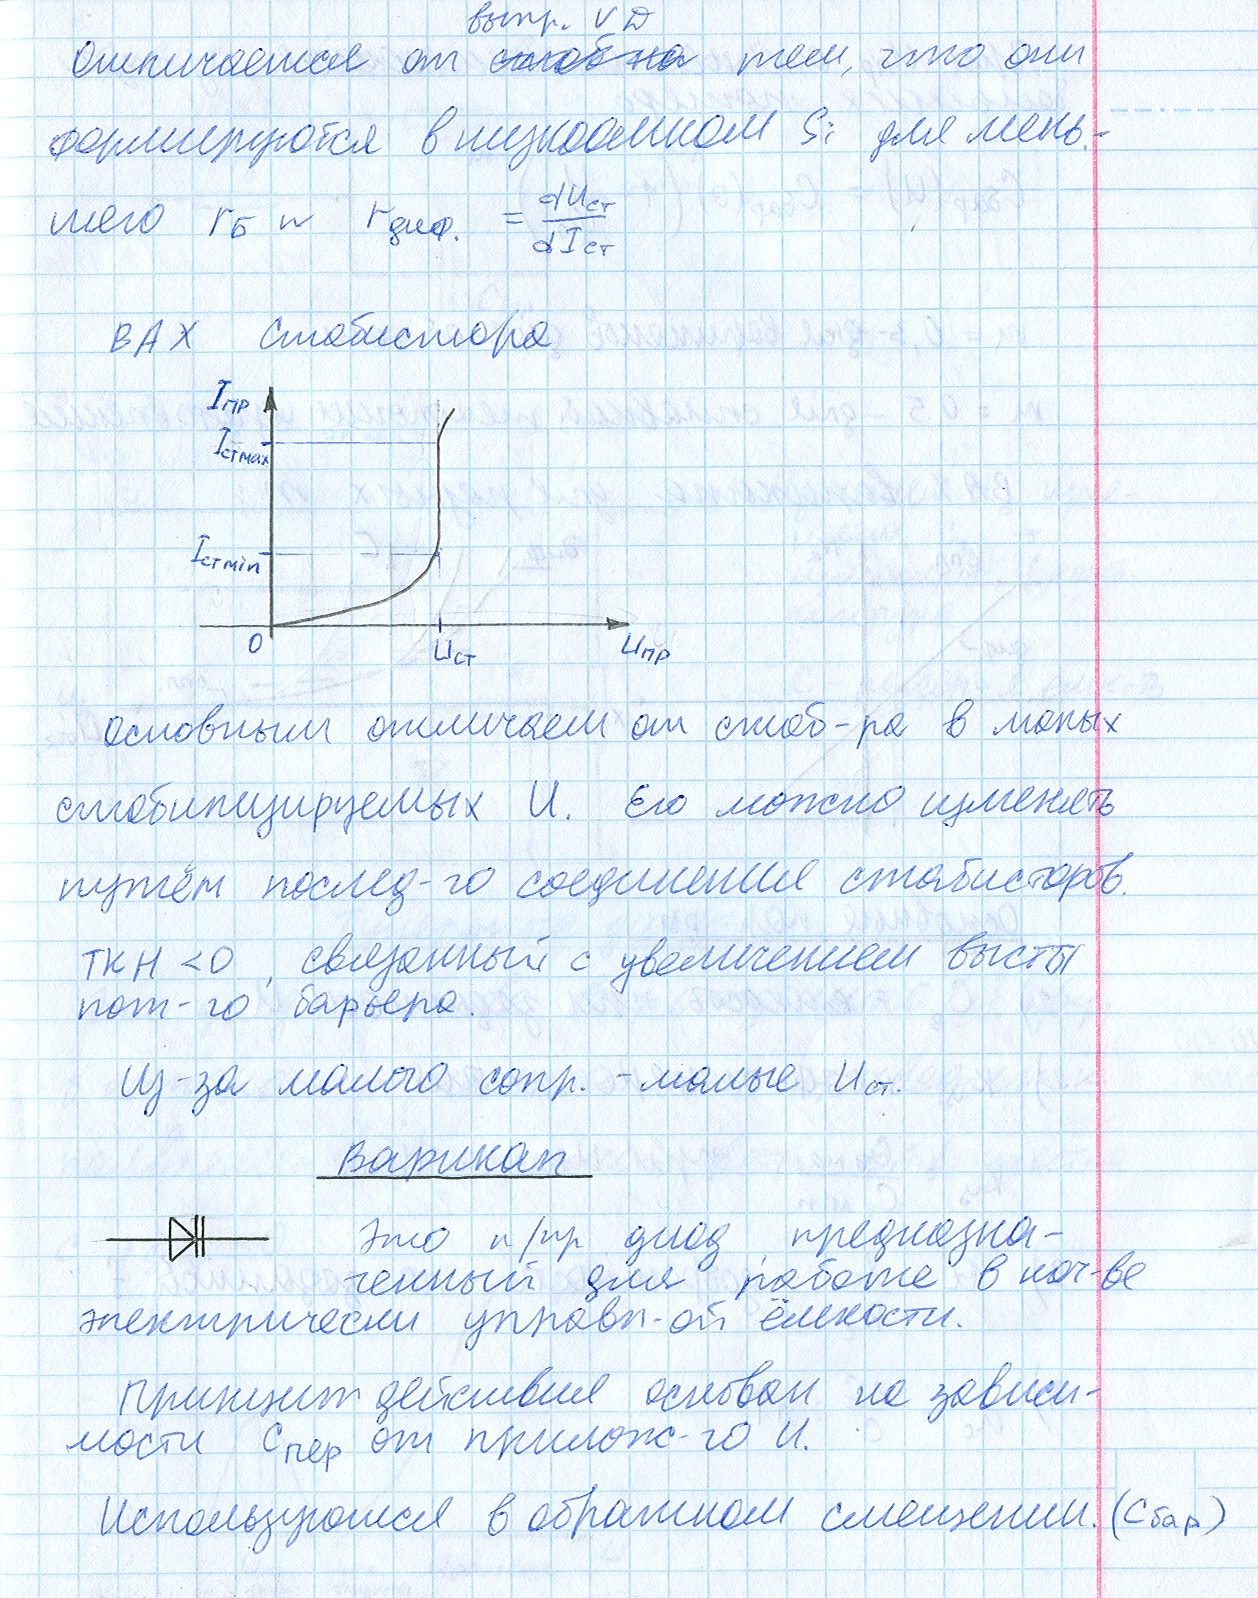 выпр. VD
Отличается от стаб-на тем, что они
формируются в низкоомном Si для мень-
шего rБ и rдиф. = dUст/dIст
ВАХ стабистора
Iпр
Iст max
Iст min
0
Uст
Uпр
Основным отличаем от стаб-ра в малых
стабилизируемых U. Его можно изменять
путём послед-го соединения стабисторов.
ТКН <0, связанный с увеличением высоты
пот-го барьера.
Из-за малого сопр. - малые Uст.
Варикап
Это п/пр диод, предназна-
ченный для работе в кач-ве
электрически управл-ой ёмкости.
Принцип действия основан на зависи-
мости Cпер от прилож-го U.
Используются в обратном смещении. (Cбар)